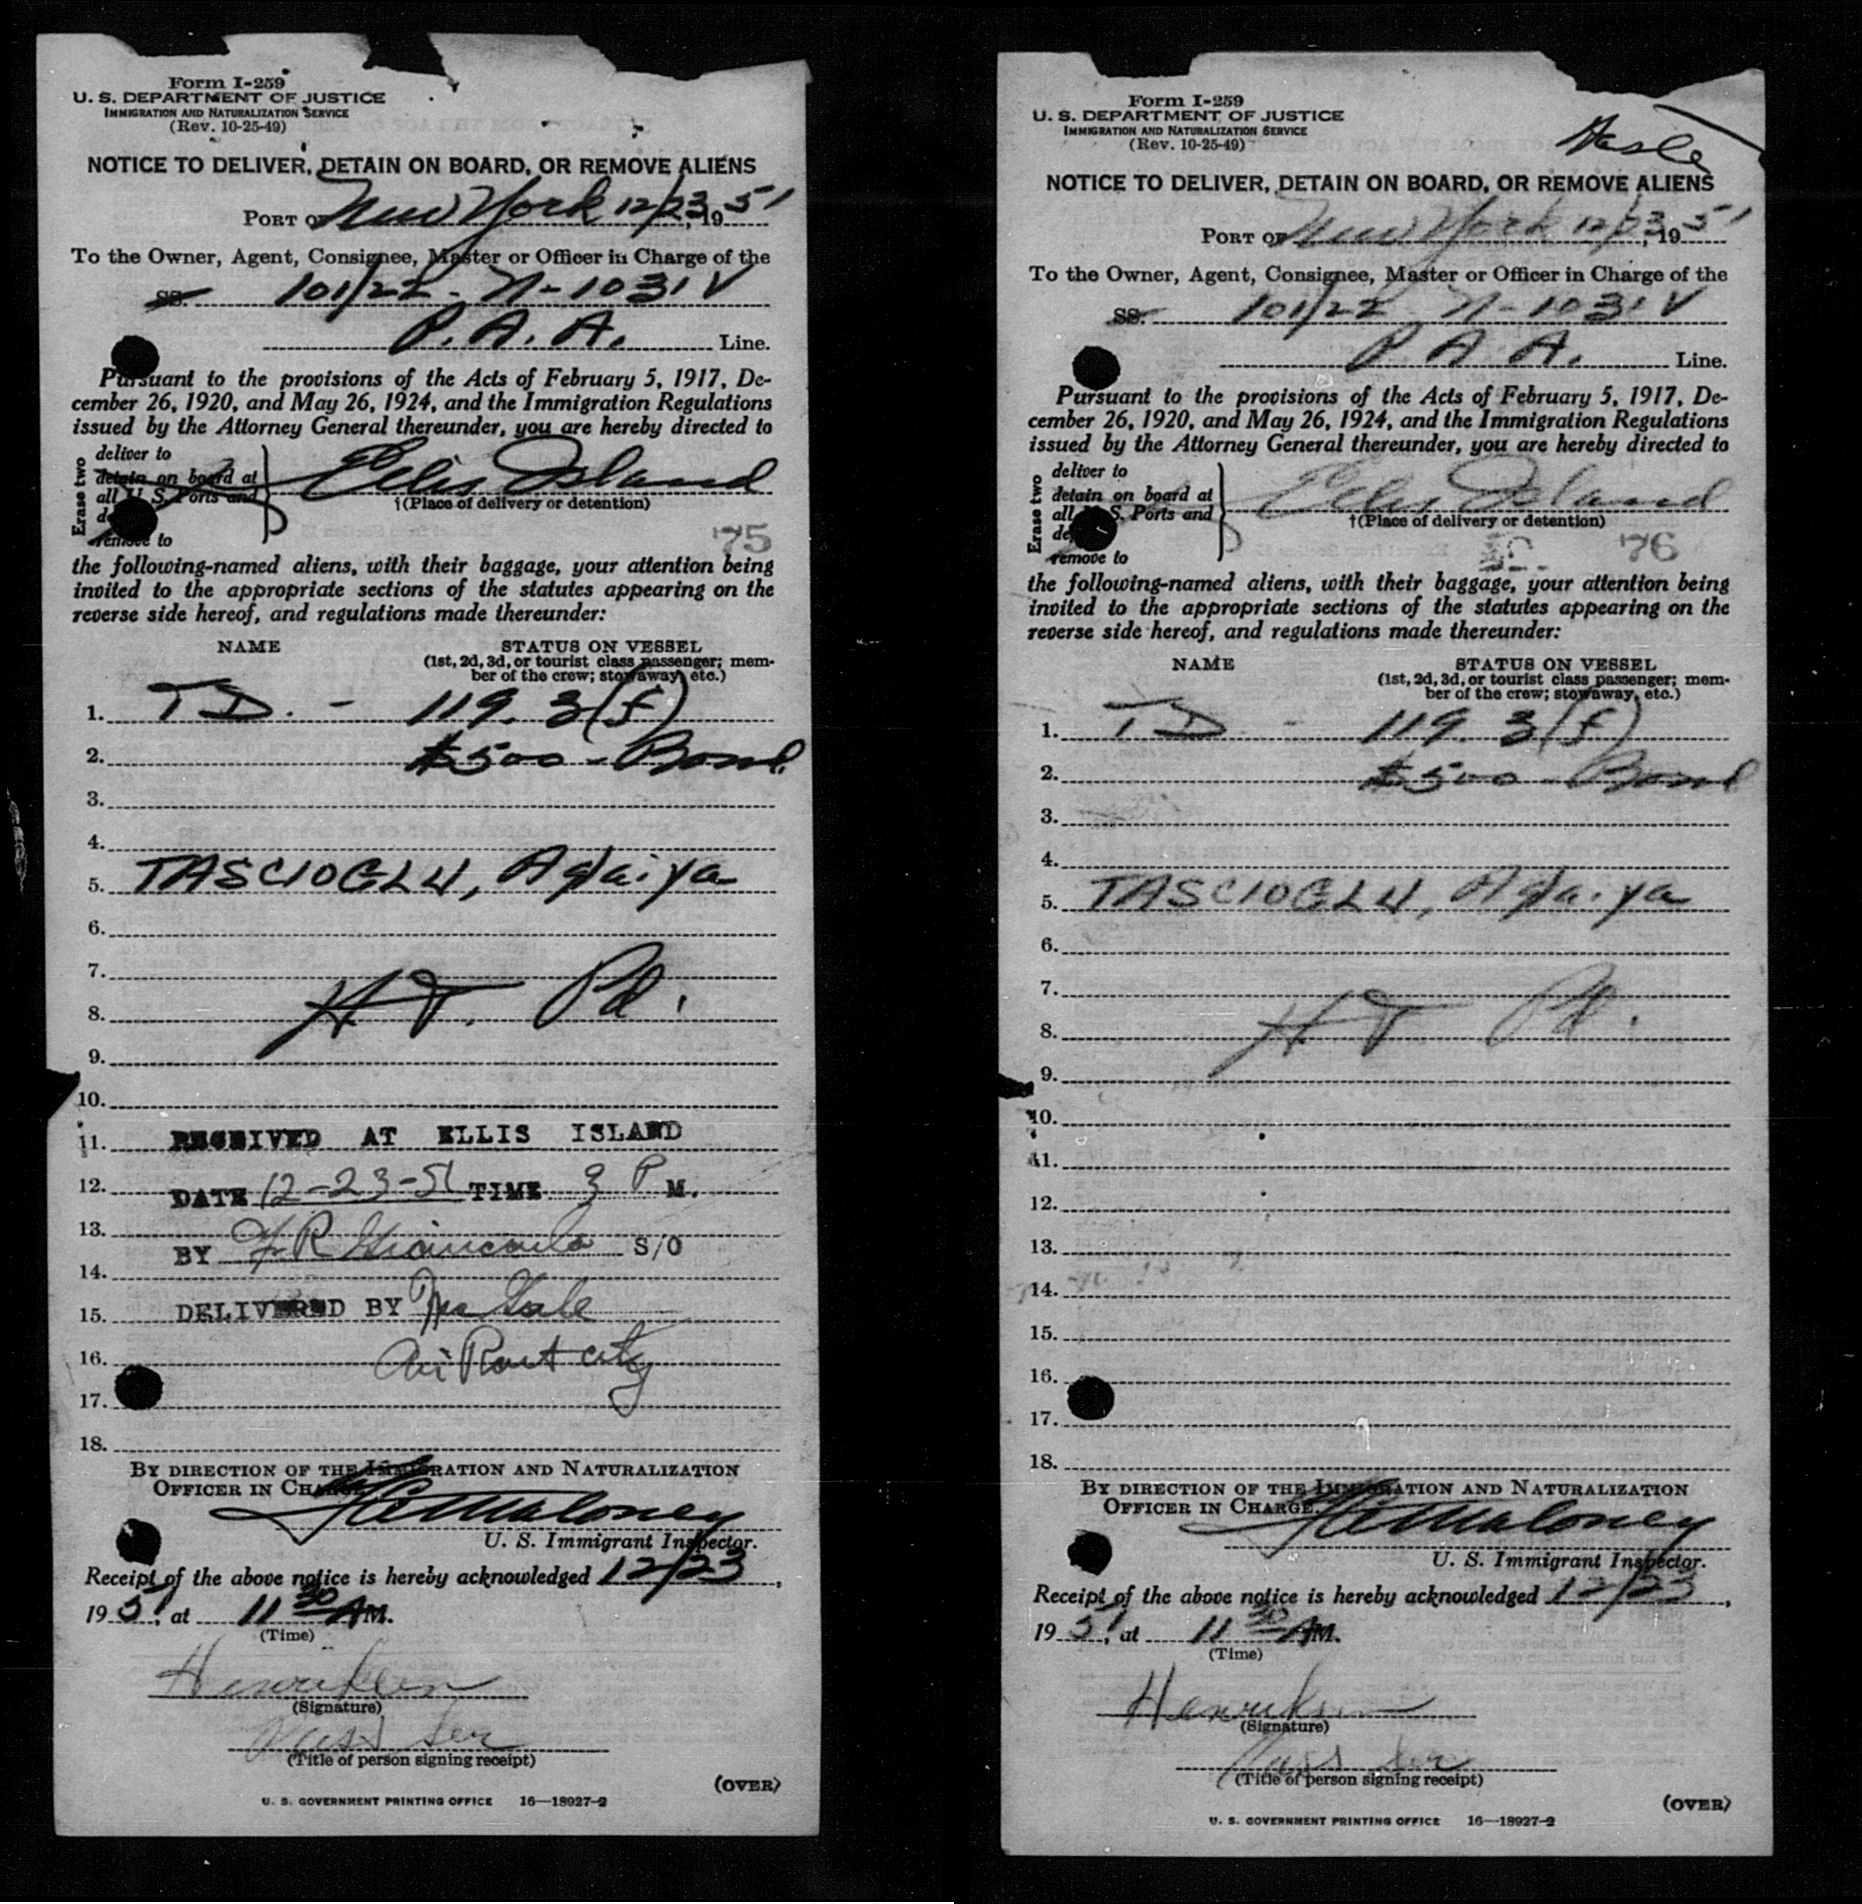 Form I-259
U. S. DEPARTMENT OF JUSTICE
IMMIGRATION AND NATURALIZATION SERVICE
(Rev. 10-25-49)
NOTICE TO DELIVER, DETAIN ON BOARD, OR REMOVE ALIENS
PORT OF New York 12/23, 1951
To the Owner, Agent, Consignee, Master or Officer in Charge of the
SS. 101/22 - N-1031V
P.A.A. Line.
Pursuant to the provisions of the Acts of February 5, 1917, De-
cember 26, 1920, and May 26, 1924, and the Immigration Regulations
issued by the Attorney General thereunder, you are hereby directed to
Erase two
deliver to
detain on board at
all U. S. Ports and
remove to
Ellis Island
†(Place of delivery or detention)
75
the following-named aliens, with their baggage, your attention being
invited to the appropriate sections of the statutes appearing on the
reverse side hereof, and regulations made thereunder:
NAME STATUS ON VESSEL
(1st, 2d, 3d, or tourist class passenger; mem-
ber of the crew; stowaway, etc.)
1. T D. - 119. 3(f)
2. $500 - Bond.
3.
4.
5. TASCIOGLU, Aglaiya
6.
7.
8. H T. Pd.
9.
10.
11. RECEIVED AT ELLIS ISLAND
12. DATE 12-23-51 TIME 3 P M.
13. BY S/O
14.
15. DELIVERED BY
16. Air Port city
17.
18.
BY DIRECTION OF THE IMMIGRATION AND NATURALIZATION
OFFICER IN CHARGE.
Maloney
U. S. Immigrant Inspector.
Receipt of the above notice is hereby acknowledged 12/23,
1951, at 11 30 AM.
(Time)
Henriksen
(Signature)
Pass Ser
(Title of person signing receipt)
(OVER)
U. S. GOVERNMENT PRINTING OFFICE 16—18927-2
Form I-259
U. S. DEPARTMENT OF JUSTICE
IMMIGRATION AND NATURALIZATION SERVICE
(Rev. 10-25-49)
NOTICE TO DELIVER, DETAIN ON BOARD, OR REMOVE ALIENS
PORT OF New York 12/23, 1951
To the Owner, Agent, Consignee, Master or Officer in Charge of the
SS. 101/22 N-1031V
P A A. Line.
Pursuant to the provisions of the Acts of February 5, 1917, De-
cember 26, 1920, and May 26, 1924, and the Immigration Regulations
issued by the Attorney General thereunder, you are hereby directed to
Erase two
deliver to
detain on board at
all U. S. Ports and
remove to
Ellis Island
†(Place of delivery or detention)
76
the following-named aliens, with their baggage, your attention being
invited to the appropriate sections of the statutes appearing on the
reverse side hereof, and regulations made thereunder:
NAME STATUS ON VESSEL
(1st, 2d, 3d, or tourist class passenger; mem-
ber of the crew; stowaway, etc.)
1. T D - 119. 3(f)
2. $500 - Bond
3.
4.
5. TASCIOGLU, Aglaiya
6.
7.
8. H T Pd.
9.
10.
11.
12.
13.
14.
15.
16.
17.
18.
BY DIRECTION OF THE IMMIGRATION AND NATURALIZATION
OFFICER IN CHARGE.
Maloney
U. S. Immigrant Inspector.
Receipt of the above notice is hereby acknowledged 12/23,
1951, at 11 30 AM.
(Time)
Henriksen
(Signature)
Pass Ser
(Title of person signing receipt)
(OVER)
U. S. GOVERNMENT PRINTING OFFICE 16—18927-2